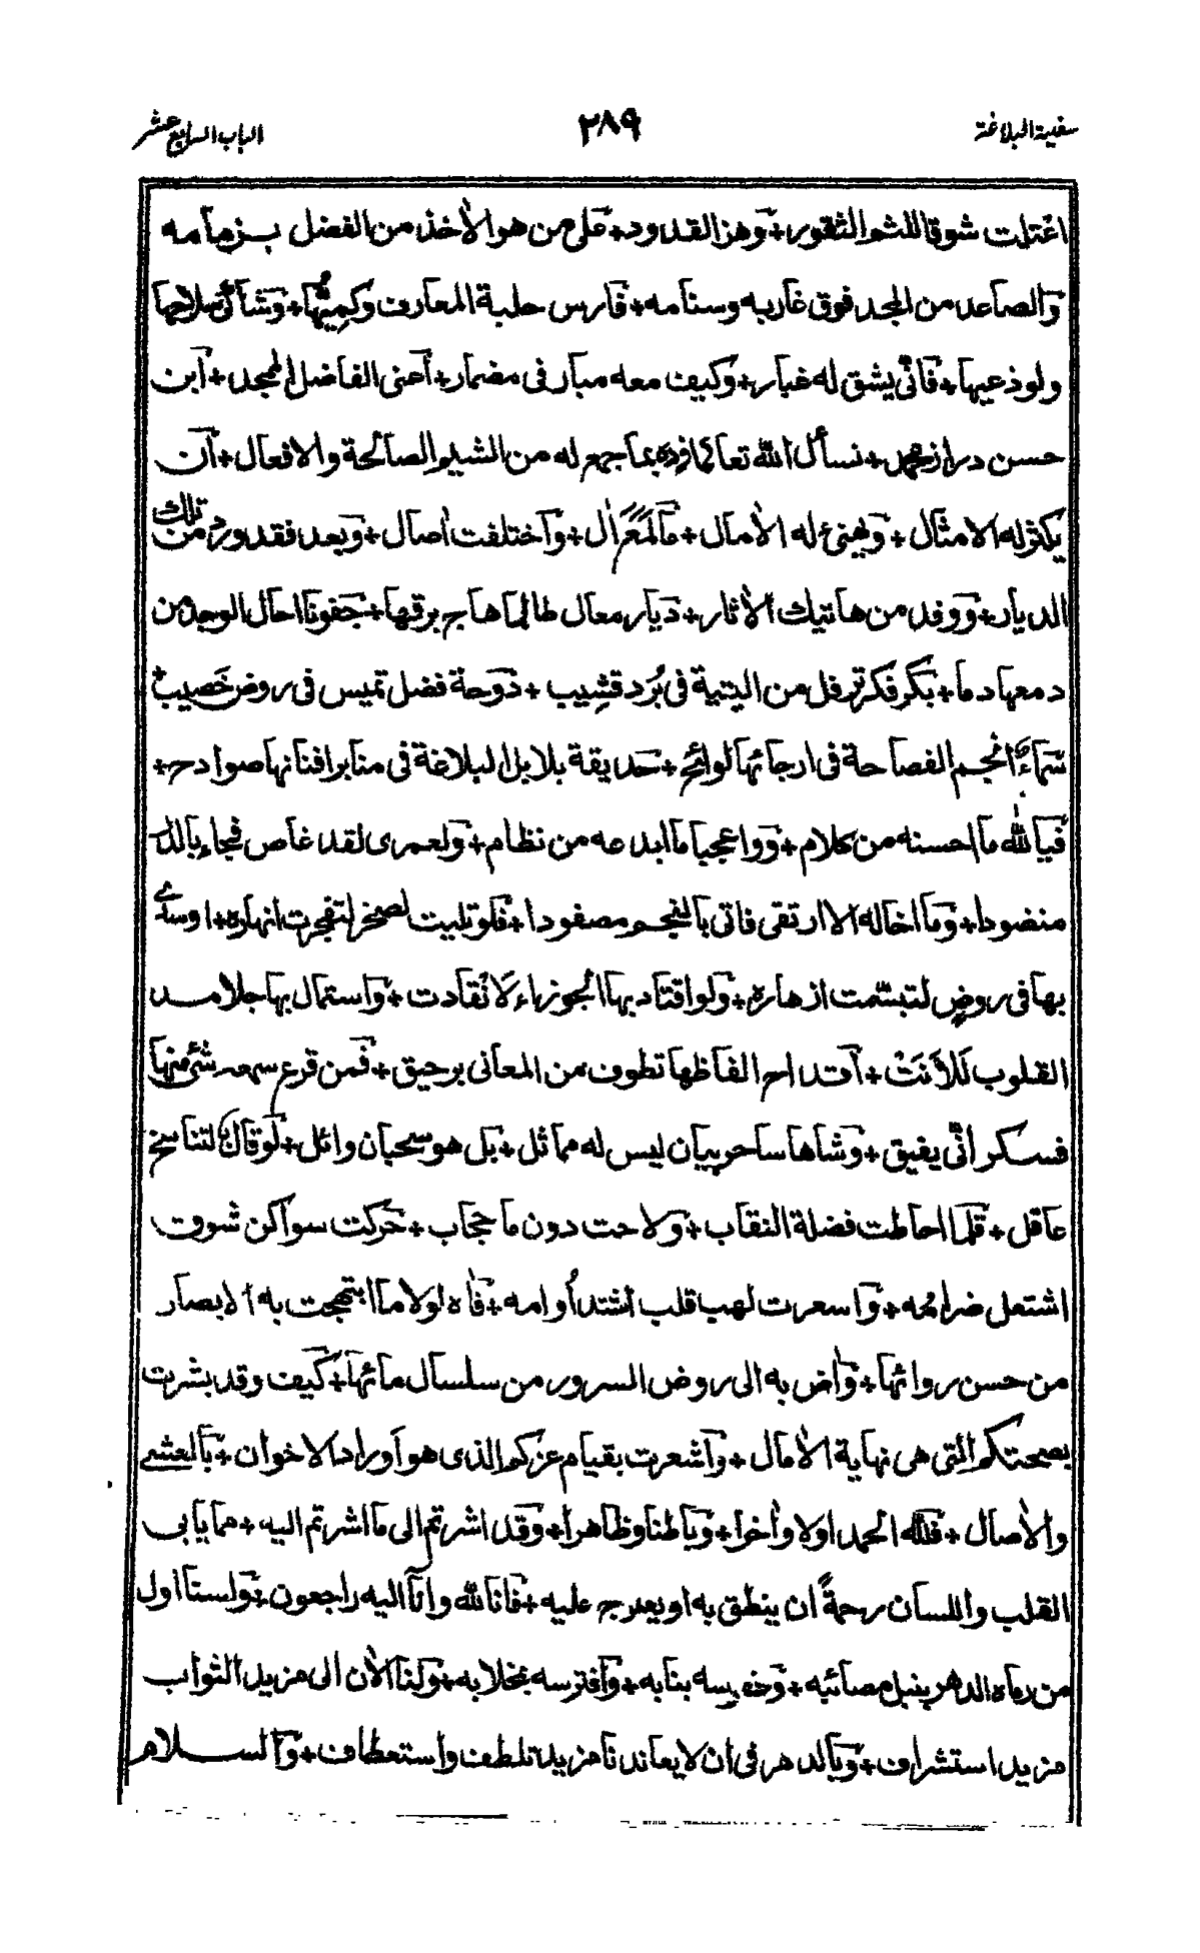 سفينة البلاغة ٢٨٩ الباب السابع عشر
اعتلت شوقا للثم الثغور + وهز القدود + على من هو الأخذ من الفضل بزمامه
والصاعد من المجد فوق غاربه وسنامه + فارس حلبة المعارف وكميتها + وشاكى سلاحها
ولوذعيها + فأنى يشق له غبار + وكيف معه مبار فى مضمار + أعنى الفاضل الممجد + ابن
حسن دراز محمد + نسأل الله تعالى كما فرده بما جمع له من الشيم الصالحة والافعال + أن
يكثر له الامثال + ويهنئ له الأمال + مالمع أل + واختلفت أصال + وبعد فقد ورد من تلك
الديار + ووفد من هاتيك الأثار + ديار معال طالما هاج برقها + جفونا احال الوجد من
دمعها دما + بكر فكر ترفل من اليتية فى برد قشيب + دوحة فضل تميس فى روض خصيب +
سماء أنجم الفصاحة فى ارجائها لوائح + حديقة بلابل البلاغة فى منابر افنانها صوادح +
فيالله ما احسنه من كلام + وواعجبا ما ابدعه من نظام + ولعمرى لقد غاص فجاء بالدر
منضودا + وما اخاله الا ارتقى فاتى بالنجم مصفودا + فلو تليت لصخر لتفجرت انهاره + اوسرے
بها فى روض لتبسّمت ازهاره + ولو اقتاد بها الجوزاء لانقادت + واستمال بها جلامد
القلوب للأنت + أقداح الفاظها تطوف من المعانى برحيق + فمن قرع سمعه شئ منها
فسكر أنّى يفيق + وشاها ساحر بيان ليس له مماثل + بل هو سحبان وائل + لو قال بالتناسخ
عاقل + فلما احاطت فضلة النقاب + ولاحت دون ما حجاب + حركت سواكن شوق
اشتعل ضرامه + واسعرت لهب قلب اشتد أوامه + فأه لولا ما ابتهجت به الابصار
من حسن روائها + وأض به الى روض السرور من سلسال مائها + كيف وقد بشرت
بصحتكم التى هى نهاية الأمال + واشعرت بقيام عزكم الذى هو أوراد الاخوان + بالعشے
والأصال + فلله الحمد اولا وأخرا + وباطنا وظاهرا + وقد اشرتم الى ما اشرتم اليه + مما يابى
القلب واللسان رحمةً ان ينطق به او يعرج عليه + فانا لله وانآ اليه راجعون + ولسنا اول
من رماه الدهر بنبل مصائبه + وخريسه بنابه + وافترسه بمخلابه + ولنا الأن الى مزيد الثواب
مزيد استشراف + وبالدهر فى ان لا يعاندنا مزيد تلطف واستعطاف + والسلام